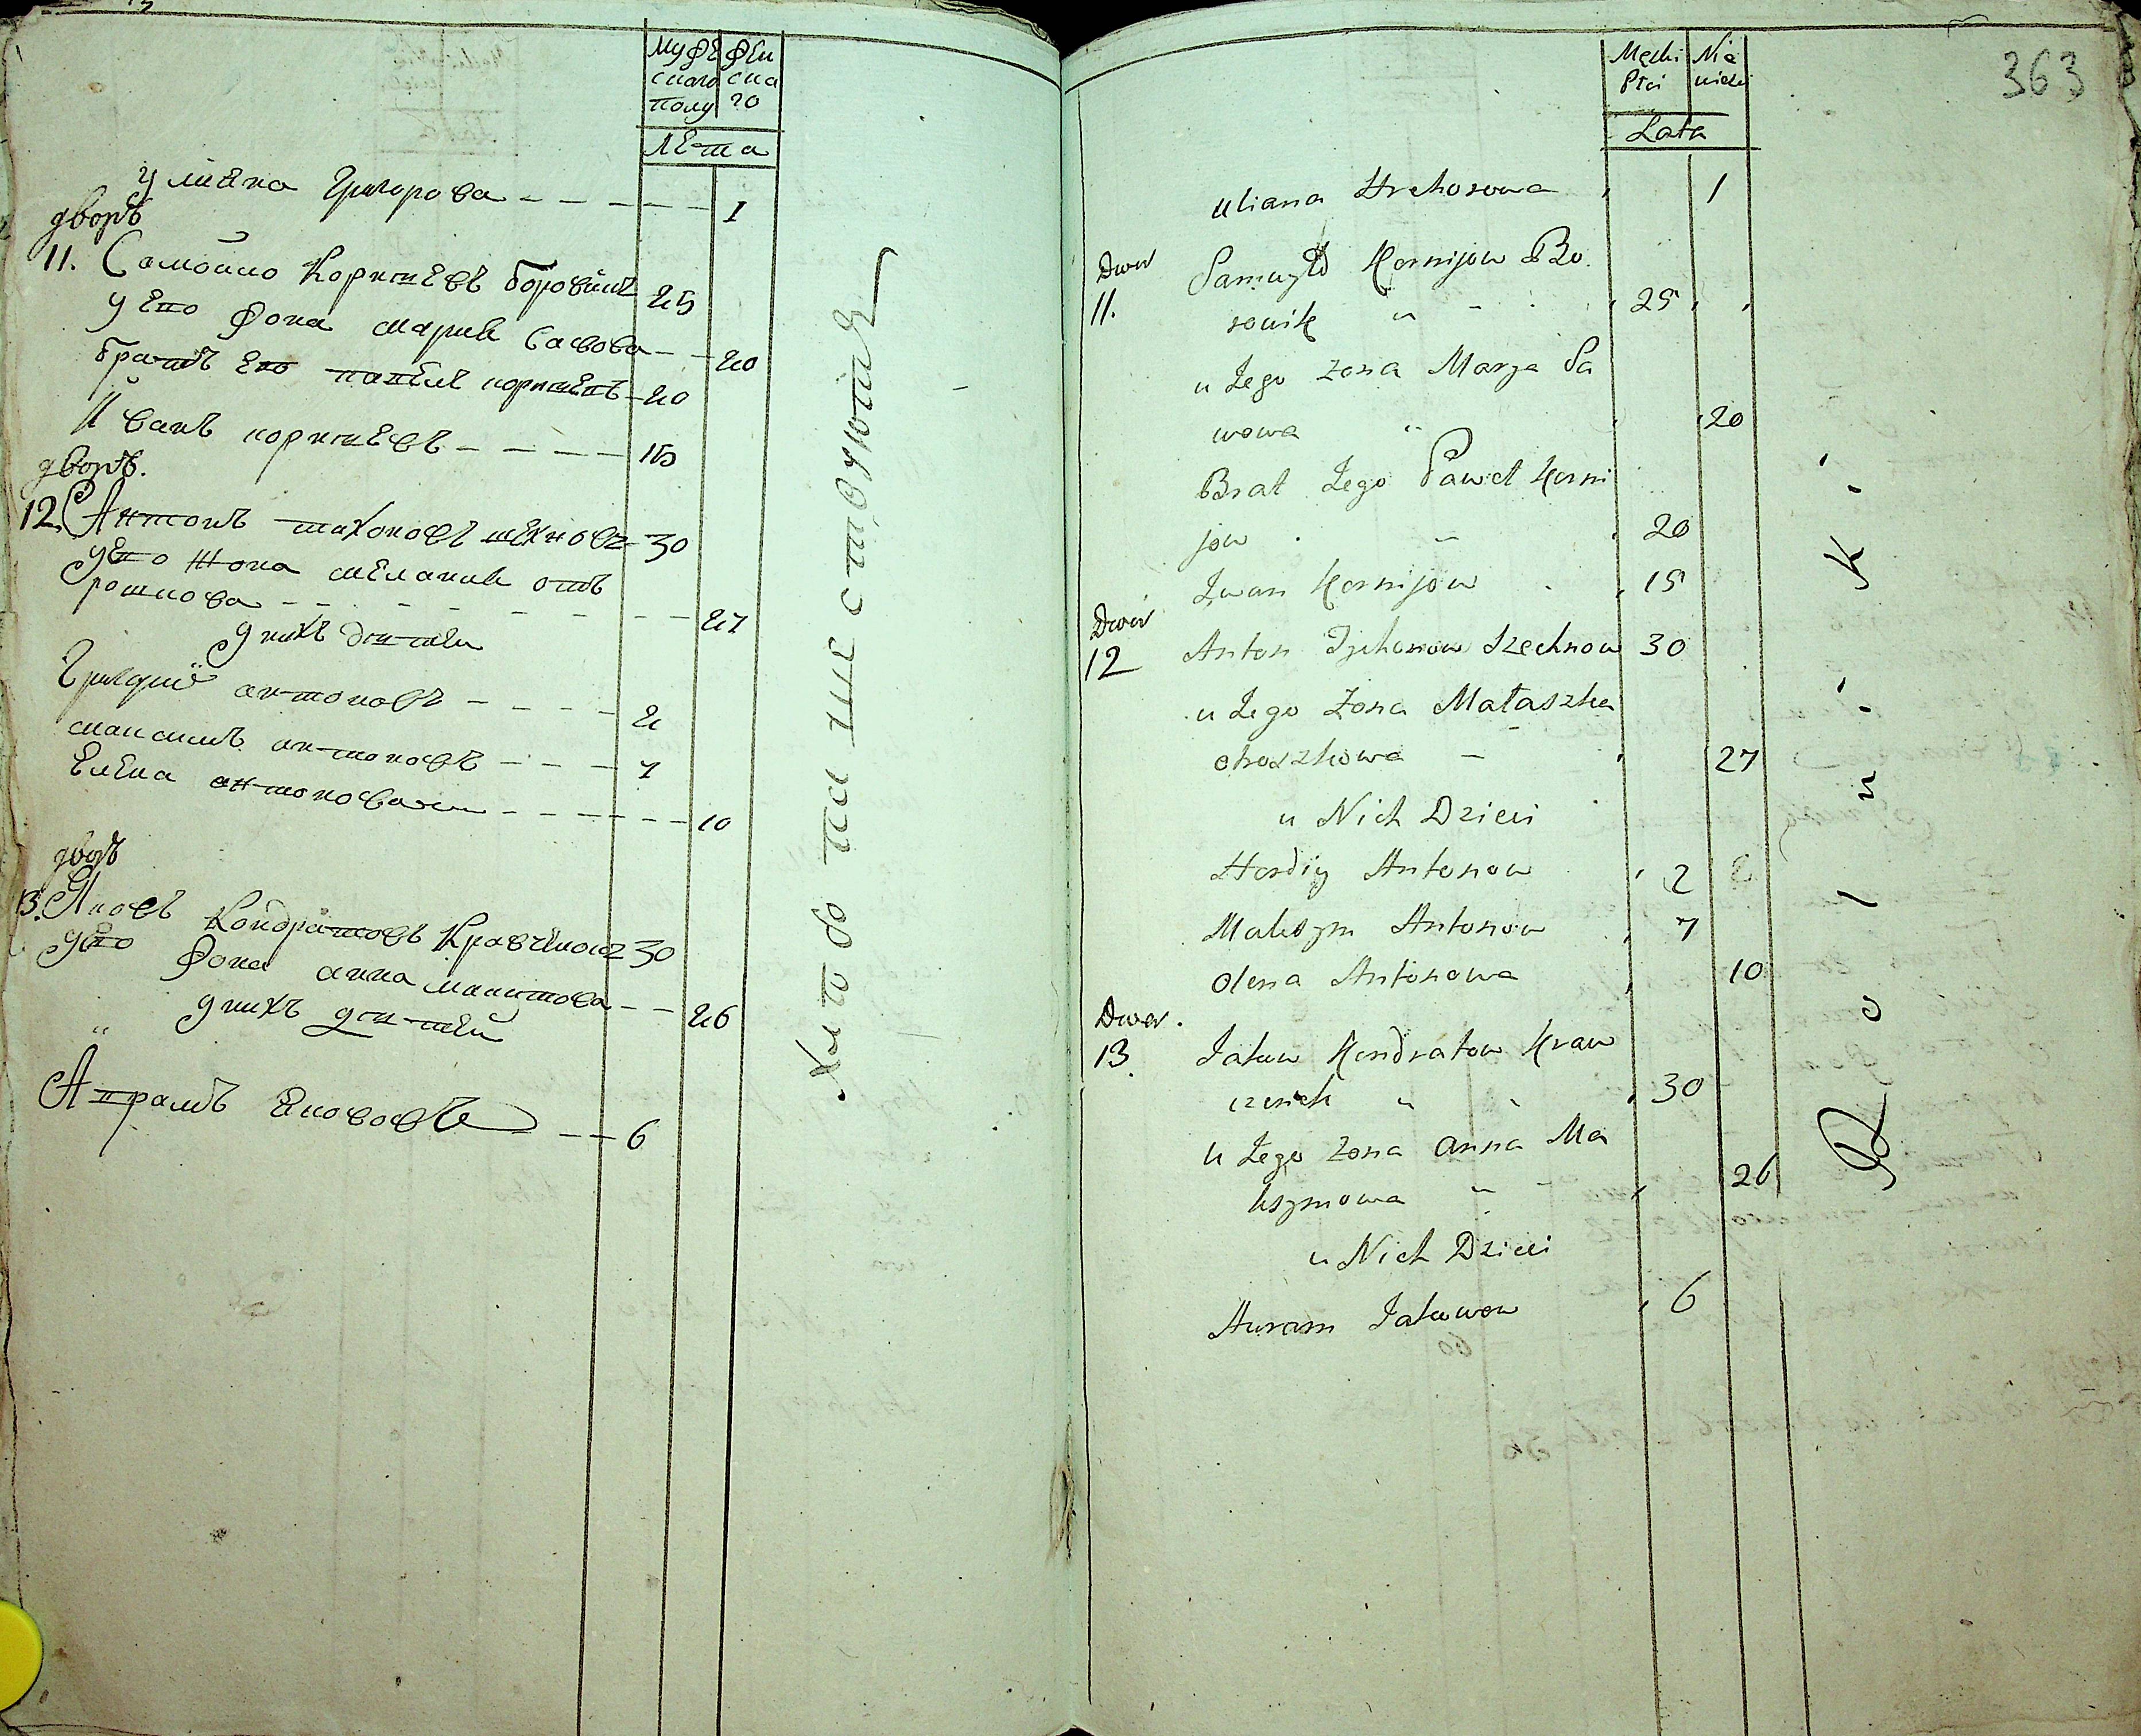 муже
ского
полу
жен
ска
го
лета
улияна Григорова — — — — — 1
дворъ
11. Самойло Корнѣевъ боровикъ 25
у его жона мария Савова — — 20
братъ его павел корнеевъ — 20
Иванъ корнеевъ — — — — 15
дворъ.
12. Антонъ тихоновъ шехновъ 30
у его жона мелания
рошкова — — — — — — — 27
у нихъ детей
антоновъ — — — — 2
максимъ антоновъ — — — 7
Елена антонова — — — — — 10
дворъ
13. Яковъ Кондратовъ Кравченокъ 30
у его жона анна макимова — — 26
у нихъ детей
Апрамъ Яковов — — 6
363
Męski
Płci
Nie
wieści
Lata
uliana Hrehorowa 1
Dwor
11. Samuyło Kornijow Bo
rowik 25
u Jego żona Marya Sa
wowa 20
Brat Jego Paweł Korni
jow 20
Iwan Kornijow 15
Dwor
12 Anton Tychonow Szechnow 30
u Jego żona Małaszka
otroszkowa 27
u Nich Dzieci
Hordiy Antonow 2
Maksym Antonow 7
Olena Antonowa 10
Dwor.
13. Jakow Kondratow Kraw
czenok 30
u Jego żona anna Ma
ksymowa 26
u Nich Dzieci
Awram Jakowow 6